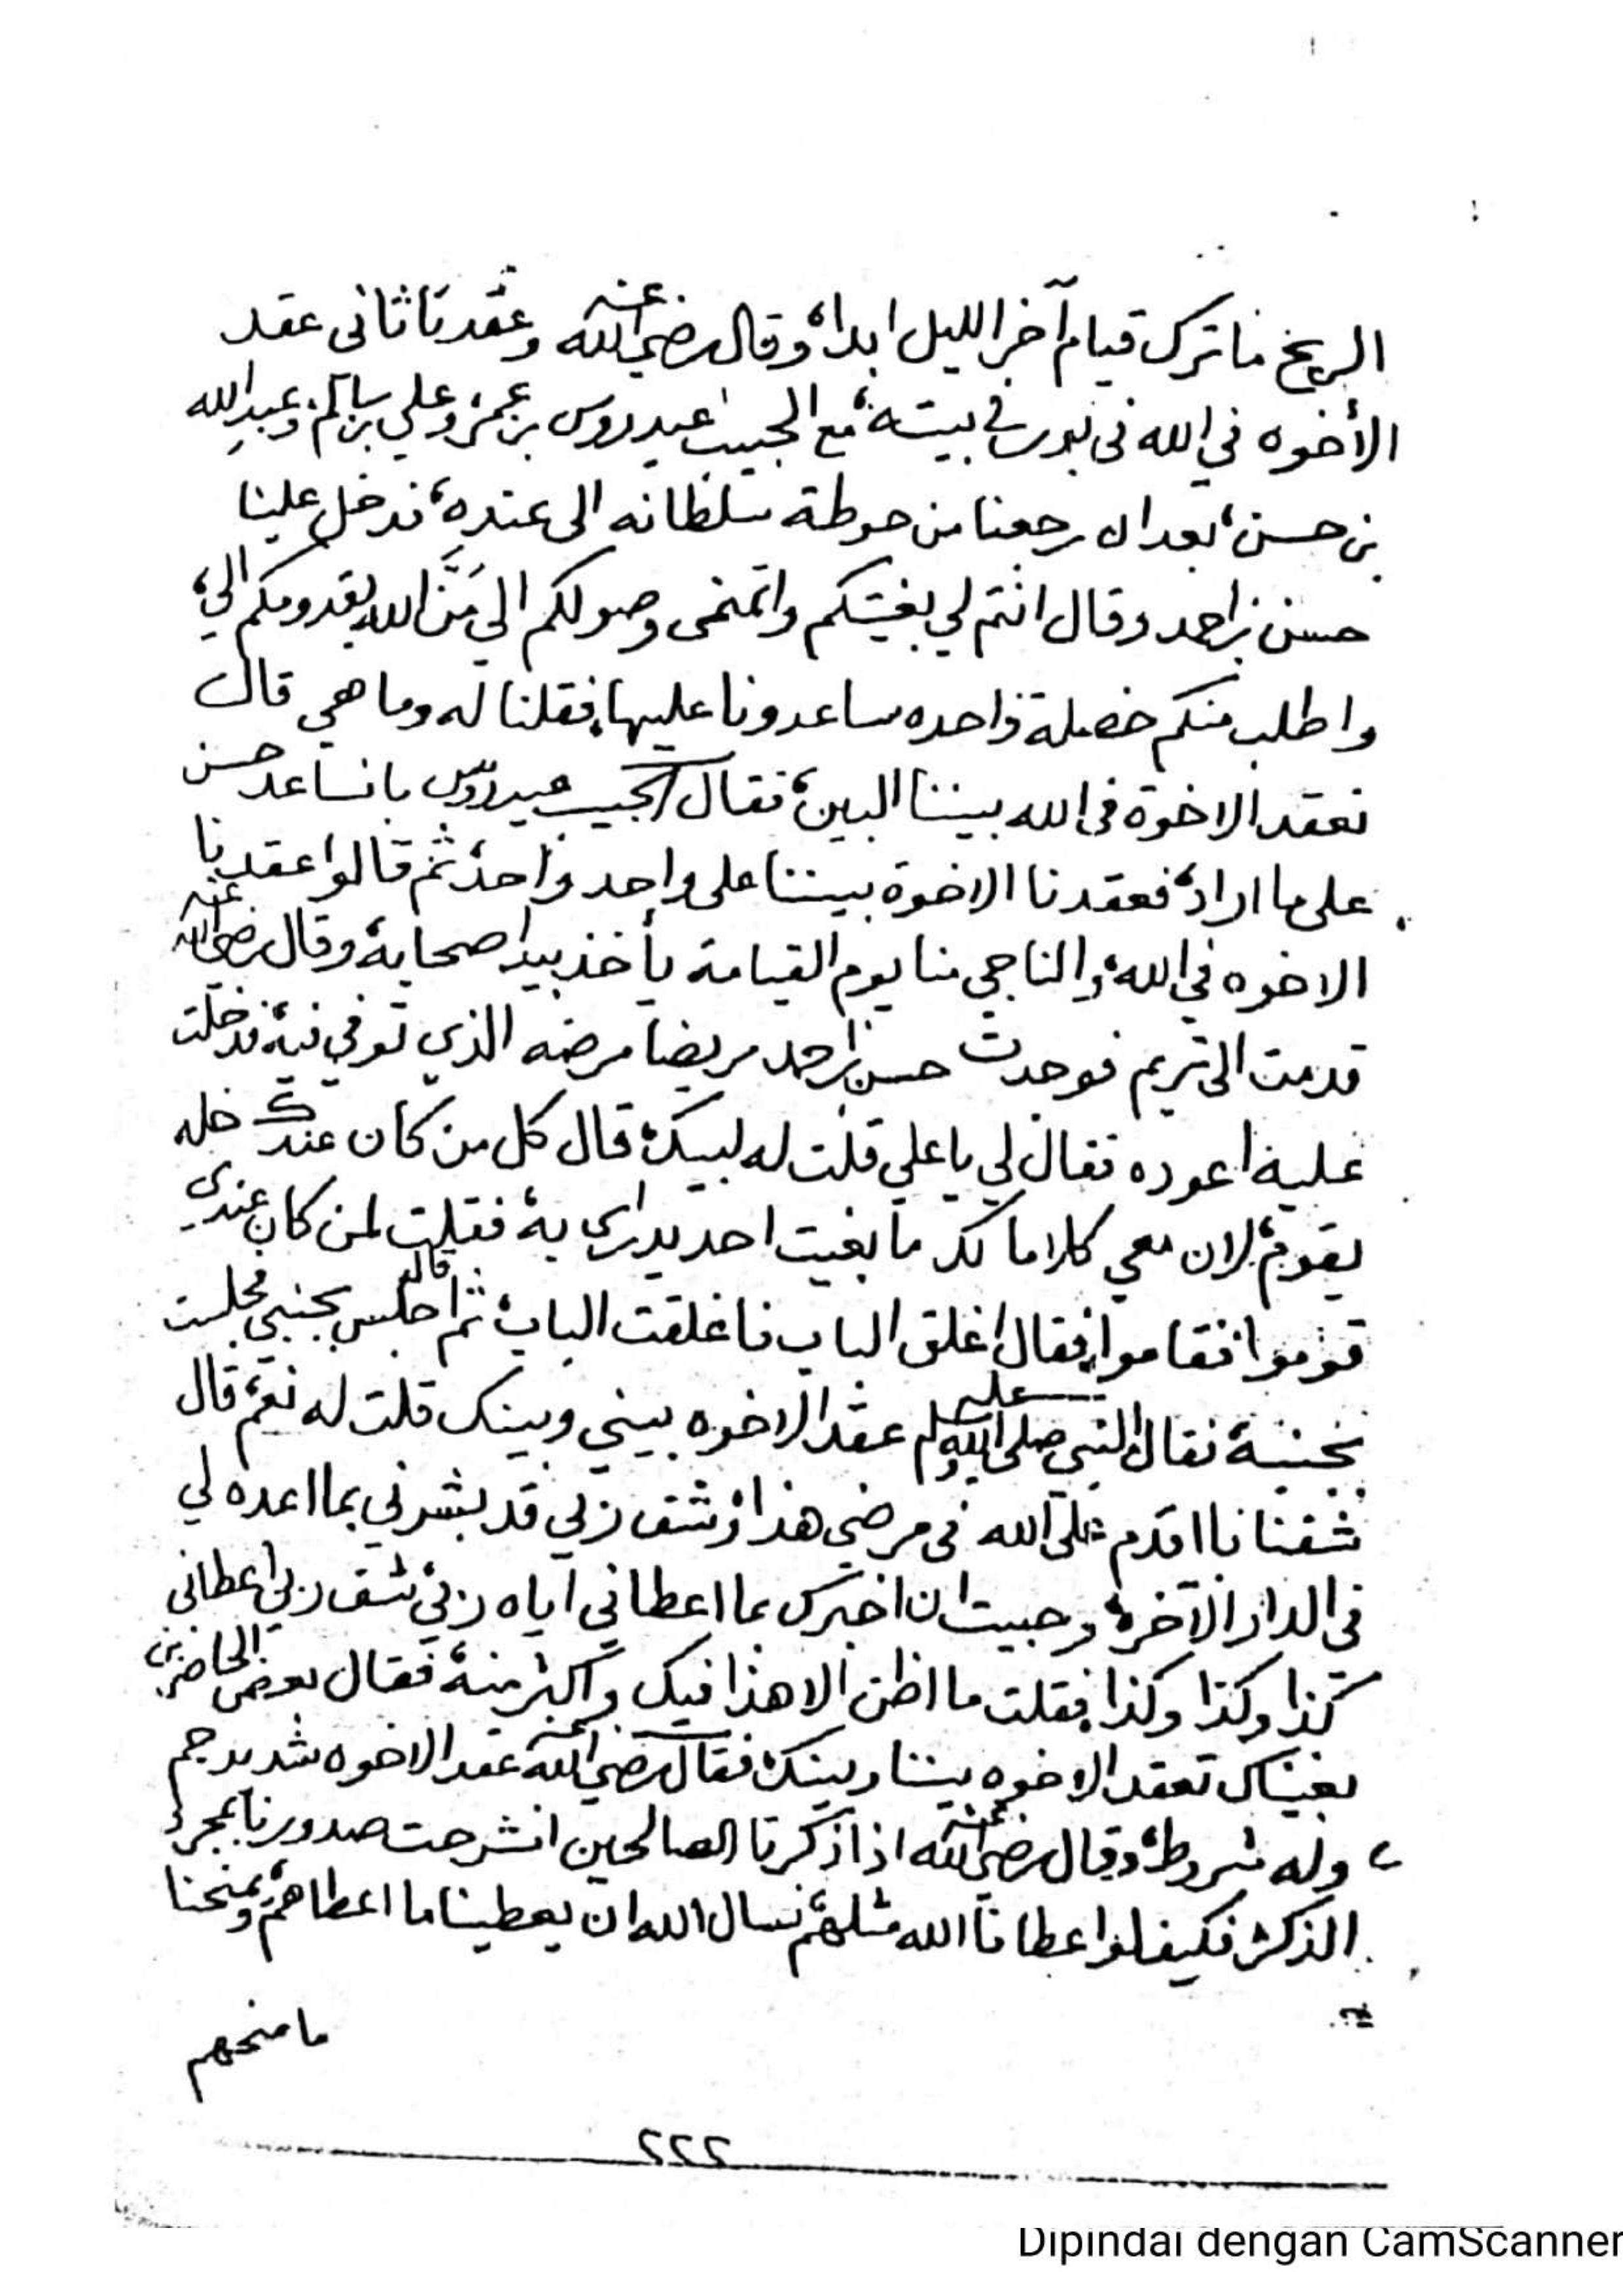 الريخ ما ترك قيام آخر الليل ابداً، وقال رضي الله عنه وعقدنا ثاني عقد
الأخوه في الله في بيته، مع الحبيب عيدروس بن عمر، وعلي بن سالم، وعبدالله
بن حسن، بعد ان رجعنا من حوطة سلطانه الى عنده، فدخل علينا
حسن بن احمد وقال انتم لي بغيتكم واتمنى وصولكم الي مَنَّ الله بقدومكم الي،
واطلب منكم خصلة واحده ساعدونا عليها، فقلنا له وما هي قال
نعقد الاخوة في الله بيننا البين، فقال الحبيب عيدروس بانساعد حسن
على ما اراد، فعقدنا الاخوة بيننا على واحد واحد، ثم قالوا عقدنا
الاخوه في الله، والناجي منا يوم القيامة يأخذ بيد اصحابه، وقال رضي الله عنه
قدمت الى تريم فوجدت حسن بن احمد مريضا مرضه الذي توفي فيه، فدخلت
عليه اعوده فقال لي يا علي قلت له لبيك، قال كل من كان عندك خله
يقوم، لان معي كلاما لك ما بغيت احد يدري به، فقلت لمن كان عندي
قوموا فقاموا، فقال اغلق الباب فاغلقت الباب، ثم قال اجلس بجنبي فجلست
بجنبه، فقال النبي صلى الله عليه وسلم عقد الاخوه بيني وبينك قلت له نعم، قال
شفنا باقدم على الله في مرضي هذا، وشف ربي قد بشرني بما اعده لي
في الدار الآخرة، وحبيت ان اخبرك بما اعطاني اياه ربي، شف ربي اعطاني
كذا وكذا وكذا، فقلت ما اظن الا هذا فيك واكثر منه، فقال بعض الحاضرين
بغيناك تعقد الاخوه بيننا وبينك، فقال رضي الله عنه عقد الاخوه شديد جم
وله شروط، وقال رضي الله عنه اذا ذكرنا الصالحين انشرحت صدورنا بمجرد
الذكر، فكيف لو اعطانا الله مثلهم، نسال الله ان يعطينا ما اعطاهم، ويمنحنا
ما منحهم
٢٢٢
Dipindai dengan CamScanner